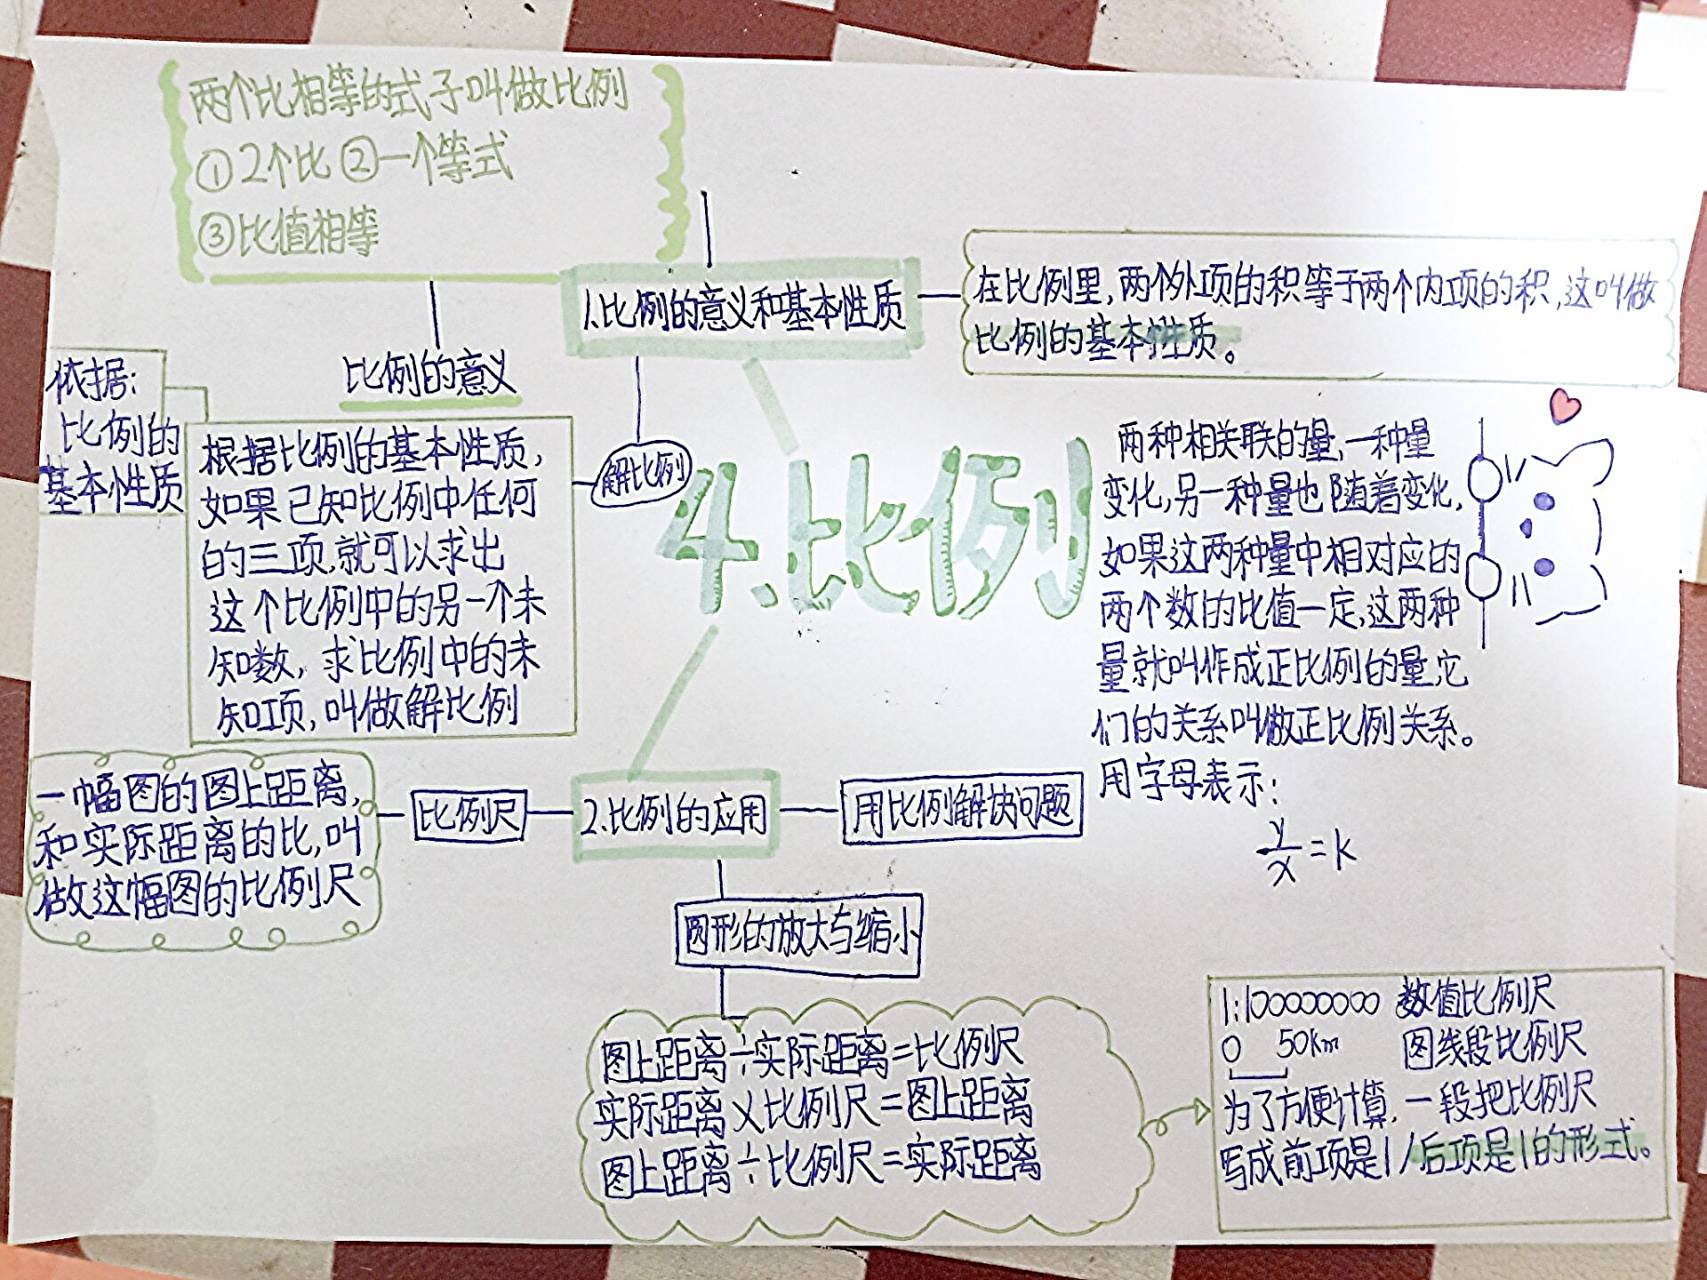 两个比相等的式子叫做比例
①2个比②一个等式
③比值相等
1.比例的意义和基本性质
在比例里,两个外项的积等于两个内项的积,这叫做
比例的基本性质。
比例的意义
依据:
比例的
基本性质
根据比例的基本性质,
如果已知比例中任何
的三项,就可以求出
这个比例中的另一个未
知数,求比例中的未
知项,叫做解比例
解比例
4.比例
两种相关联的量,一种量
变化,另一种量也随着变化,
如果这两种量中相对应的
两个数的比值一定,这两种
量就叫作成正比例的量,它
们的关系叫做正比例关系。
用字母表示:
y/x=k
一幅图的图上距离,
和实际距离的比,叫
做这幅图的比例尺
比例尺
2.比例的应用
用比例解决问题
图形的放大与缩小
图上距离÷实际距离=比例尺
实际距离×比例尺=图上距离
图上距离÷比例尺=实际距离
1:100000000 数值比例尺
0 50km 图线段比例尺
为了方便计算,一段把比例尺
写成前项是1/后项是1的形式。